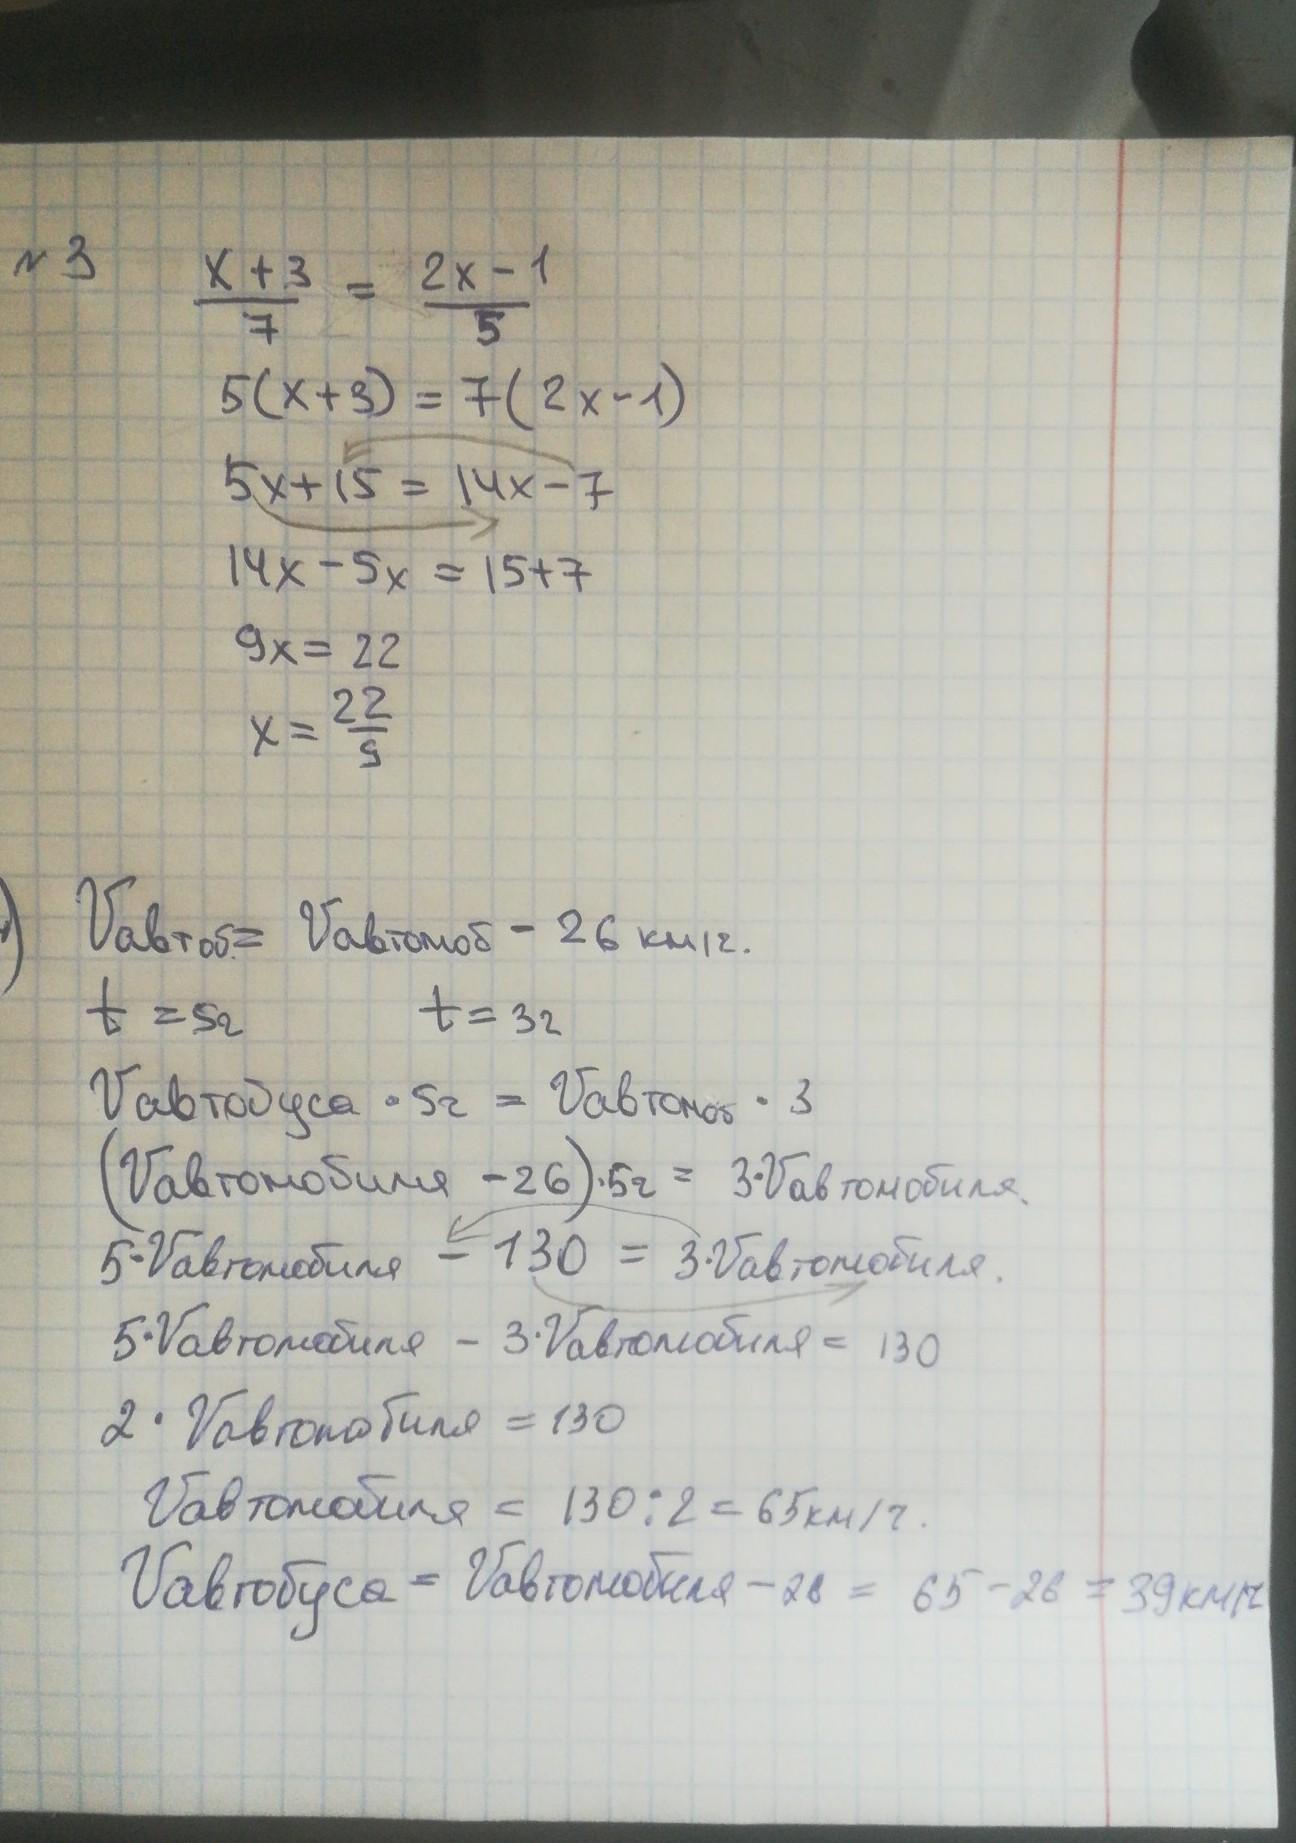 №3
x+3/7 = 2x-1/5
5(x+3) = 7(2x-1)
5x+15 = 14x-7
14x-5x = 15+7
9x = 22
x = 22/9
) Vавтоб. = Vавтомоб - 26 км/ч.
t = 5ч t = 3ч
Vавтобуса · 5ч = Vавтомоб · 3
(Vавтомобиля - 26)·5ч = 3·Vавтомобиля.
5·Vавтомобиля - 130 = 3·Vавтомобиля.
5·Vавтомобиля - 3·Vавтомобиля = 130
2·Vавтомобиля = 130
Vавтомобиля = 130:2 = 65км/ч.
Vавтобуса = Vавтомобиля - 26 = 65 - 26 = 39км/ч